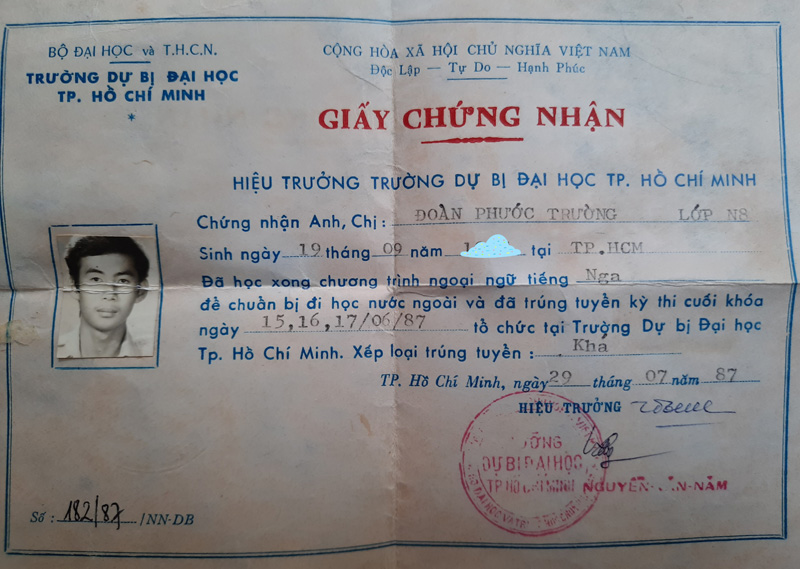 BỘ ĐẠI HỌC và T.H.C.N.
TRƯỜNG DỰ BỊ ĐẠI HỌC
TP. HỒ CHÍ MINH
*
CỘNG HÒA XÃ HỘI CHỦ NGHĨA VIỆT NAM
Độc Lập — Tự Do — Hạnh Phúc
GIẤY CHỨNG NHẬN
HIỆU TRƯỞNG TRƯỜNG DỰ BỊ ĐẠI HỌC TP. HỒ CHÍ MINH
Chứng nhận Anh, Chị: ĐOÀN PHƯỚC TRƯỜNG LỚP N8
Sinh ngày 19 tháng 09 năm 1 tại TP.HCM
Đã học xong chương trình ngoại ngữ tiếng Nga
để chuẩn bị đi học nước ngoài và đã trúng tuyển kỳ thi cuối khóa
ngày 15,16,17/06/87 tổ chức tại Trường Dự bị Đại học
Tp. Hồ Chí Minh. Xếp loại trúng tuyển : Khá
TP. Hồ Chí Minh, ngày 29 tháng 07 năm 87
HIỆU TRƯỞNG
DỰ BỊ ĐẠI HỌC
TP HỒ CHÍ MINH
NGUYỄN-VĂN-NĂM
Số : 182/87 /NN-DB